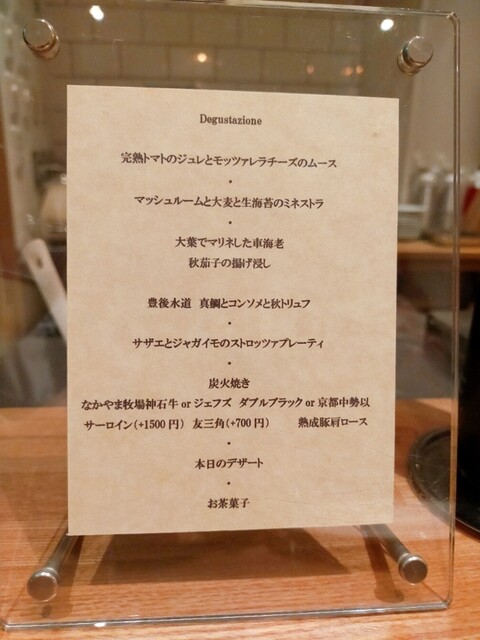 Degustazione
完熟トマトのジュレとモッツァレラチーズのムース
・
マッシュルームと大麦と生海苔のミネストラ
・
大葉でマリネした車海老
秋茄子の揚げ浸し
豊後水道 真鯛とコンソメと秋トリュフ
・
サザエとジャガイモのストロッツァプレーティ
・
炭火焼き
なかやま牧場神石牛 or ジェフズ ダブルブラック or 京都中勢以
サーロイン(+1500 円) 友三角(+700 円) 熟成豚肩ロース
・
本日のデザート
・
お茶菓子